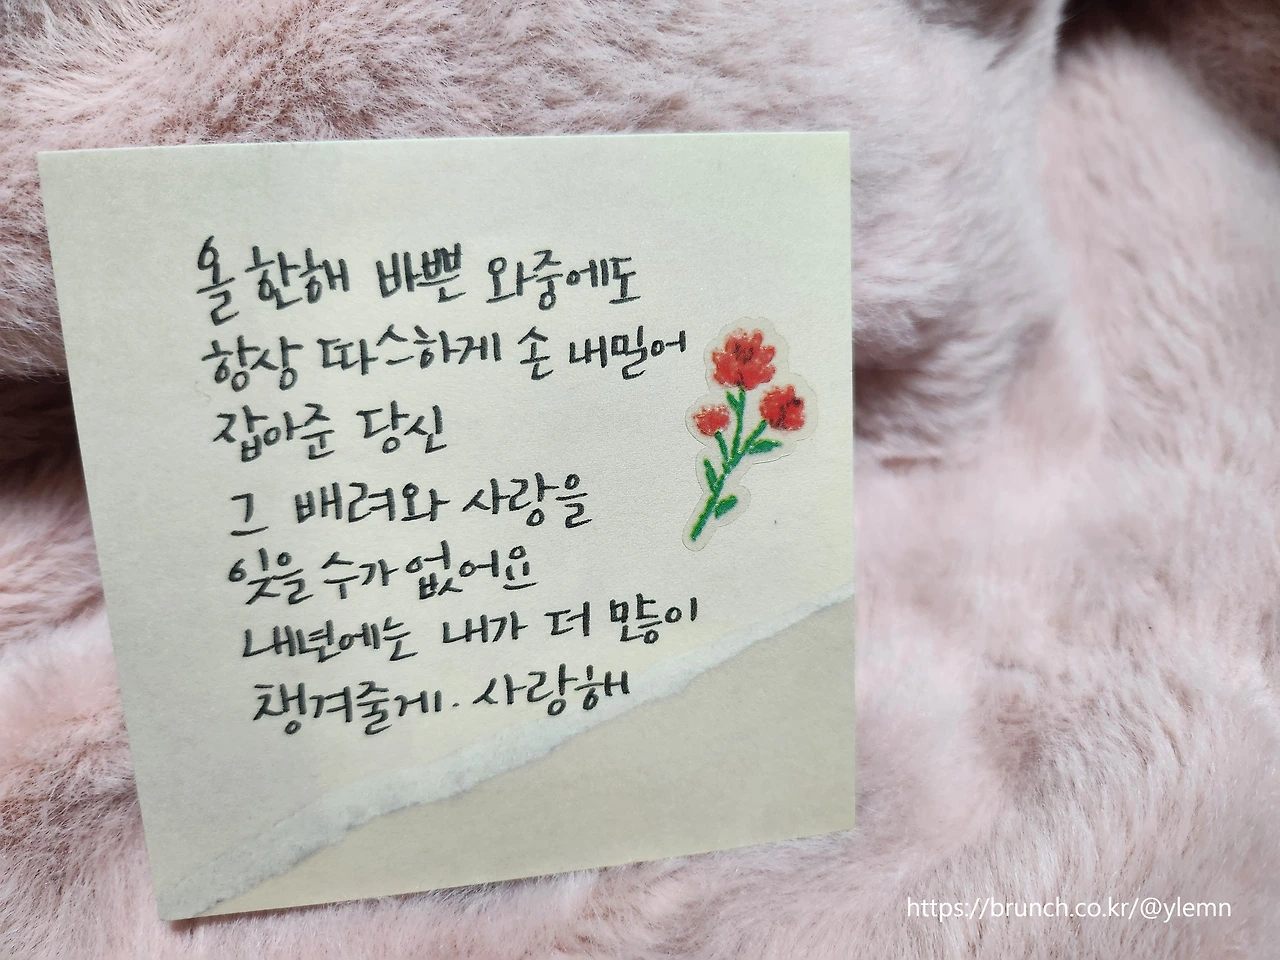 올 한해 바쁜 와중에도
항상 따스하게 손 내밀어
잡아준 당신
그 배려와 사랑을
잊을 수가 없어요
내년에는 내가 더 많이
챙겨줄게. 사랑해
https://brunch.co.kr/@ylemn